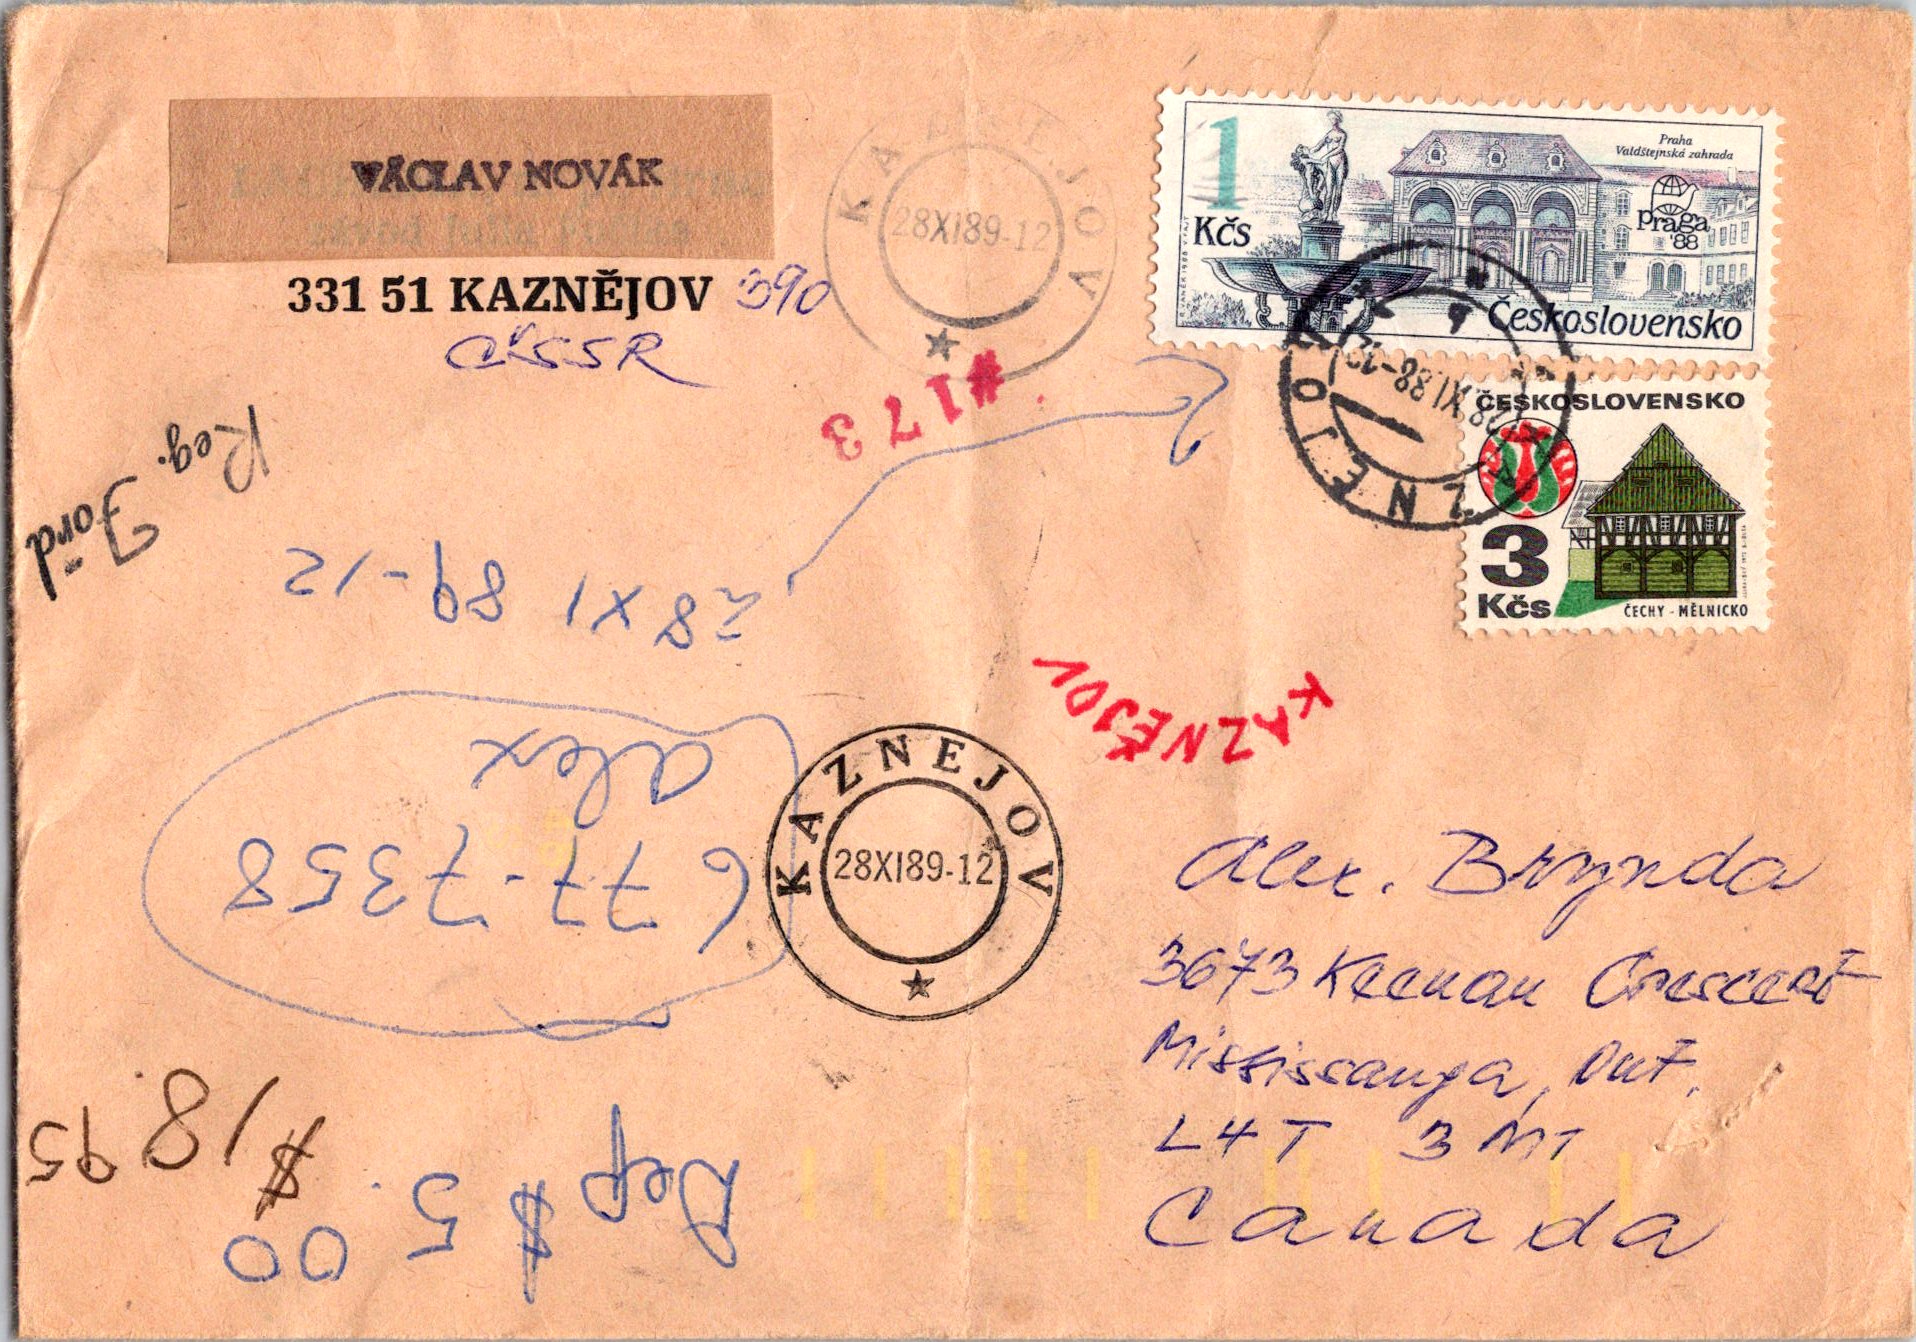 VÁCLAV NOVÁK
331 51 KAZNĚJOV 390
ČSSR
KAZNEJOV
28XI89-12
#173
1
Kčs
Praha
Valdštejnská zahrada
praga
'88
Československo
ZNEJO
ČESKOSLOVENSKO
3
Kčs
ČECHY - MĚLNICKO
Reg.
Förd
28 XI 89-12
KAZNĚJOV
Alex
677-7358
KAZNEJOV
28XI89-12
Alex. Brynda
3673 Keenan Crescent
Mississauga, Ont.
L4T 3M1
Canada
$18.95
Dep $5.00